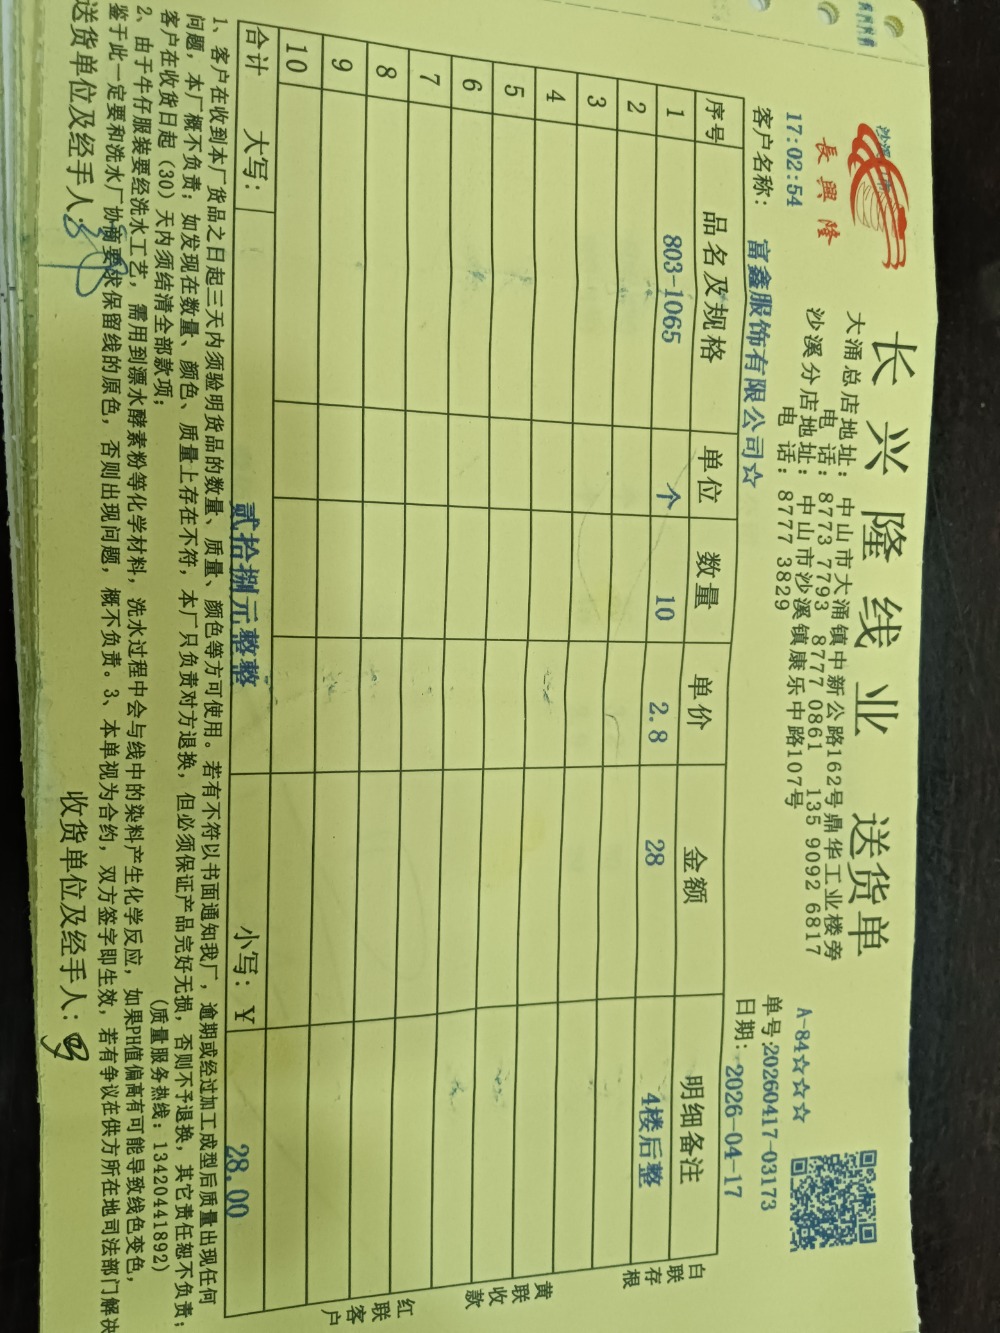 長興隆
长兴隆线业 送货单
大涌总店地址：中山市大涌镇中新公路162号鼎华工业楼旁
电 话：8773 7793 8777 0861 135 9092 6817
沙溪分店地址：中山市沙溪镇康乐中路107号
电 话：8777 3829
17:02:54
A-84☆☆☆☆
单号:20260417-03173
客户名称： 富鑫服饰有限公司☆
日期：2026-04-17
序号 品名及规格 单位 数量 单价 金额 明细备注
1 803-1065 个 10 2.8 28 4楼后整
2
3
4
5
6
7
8
9
10
合计 大写： 贰拾捌元整整 小写：￥ 28.00
白联存根
黄联收款
红联客户
1、客户在收到本厂货品之日起三天内须验明货品的数量、质量、颜色等方可使用。若有不符以书面通知我厂，逾期或经过加工成型后质量出现任何
问题，本厂概不负责；如发现在数量、颜色、质量上存在不符，本厂只负责对方退换，但必须保证产品完好无损，否则不予退换，其它责任恕不负责；
客户在收货日起（30）天内须结清全部款项； （质量服务热线：13420441892）
2、由于牛仔服装要经洗水工艺，需用到漂水酵素粉等化学材料，洗水过程中会与线中的染料产生化学反应，如果PH值偏高有可能导致线色变色，
鉴于此一定要和洗水厂协商要求保留线的原色，否则出现问题，概不负责。3、本单视为合约，双方签字即生效，若有争议在供方所在地司法部门解决
送货单位及经手人： 收货单位及经手人：